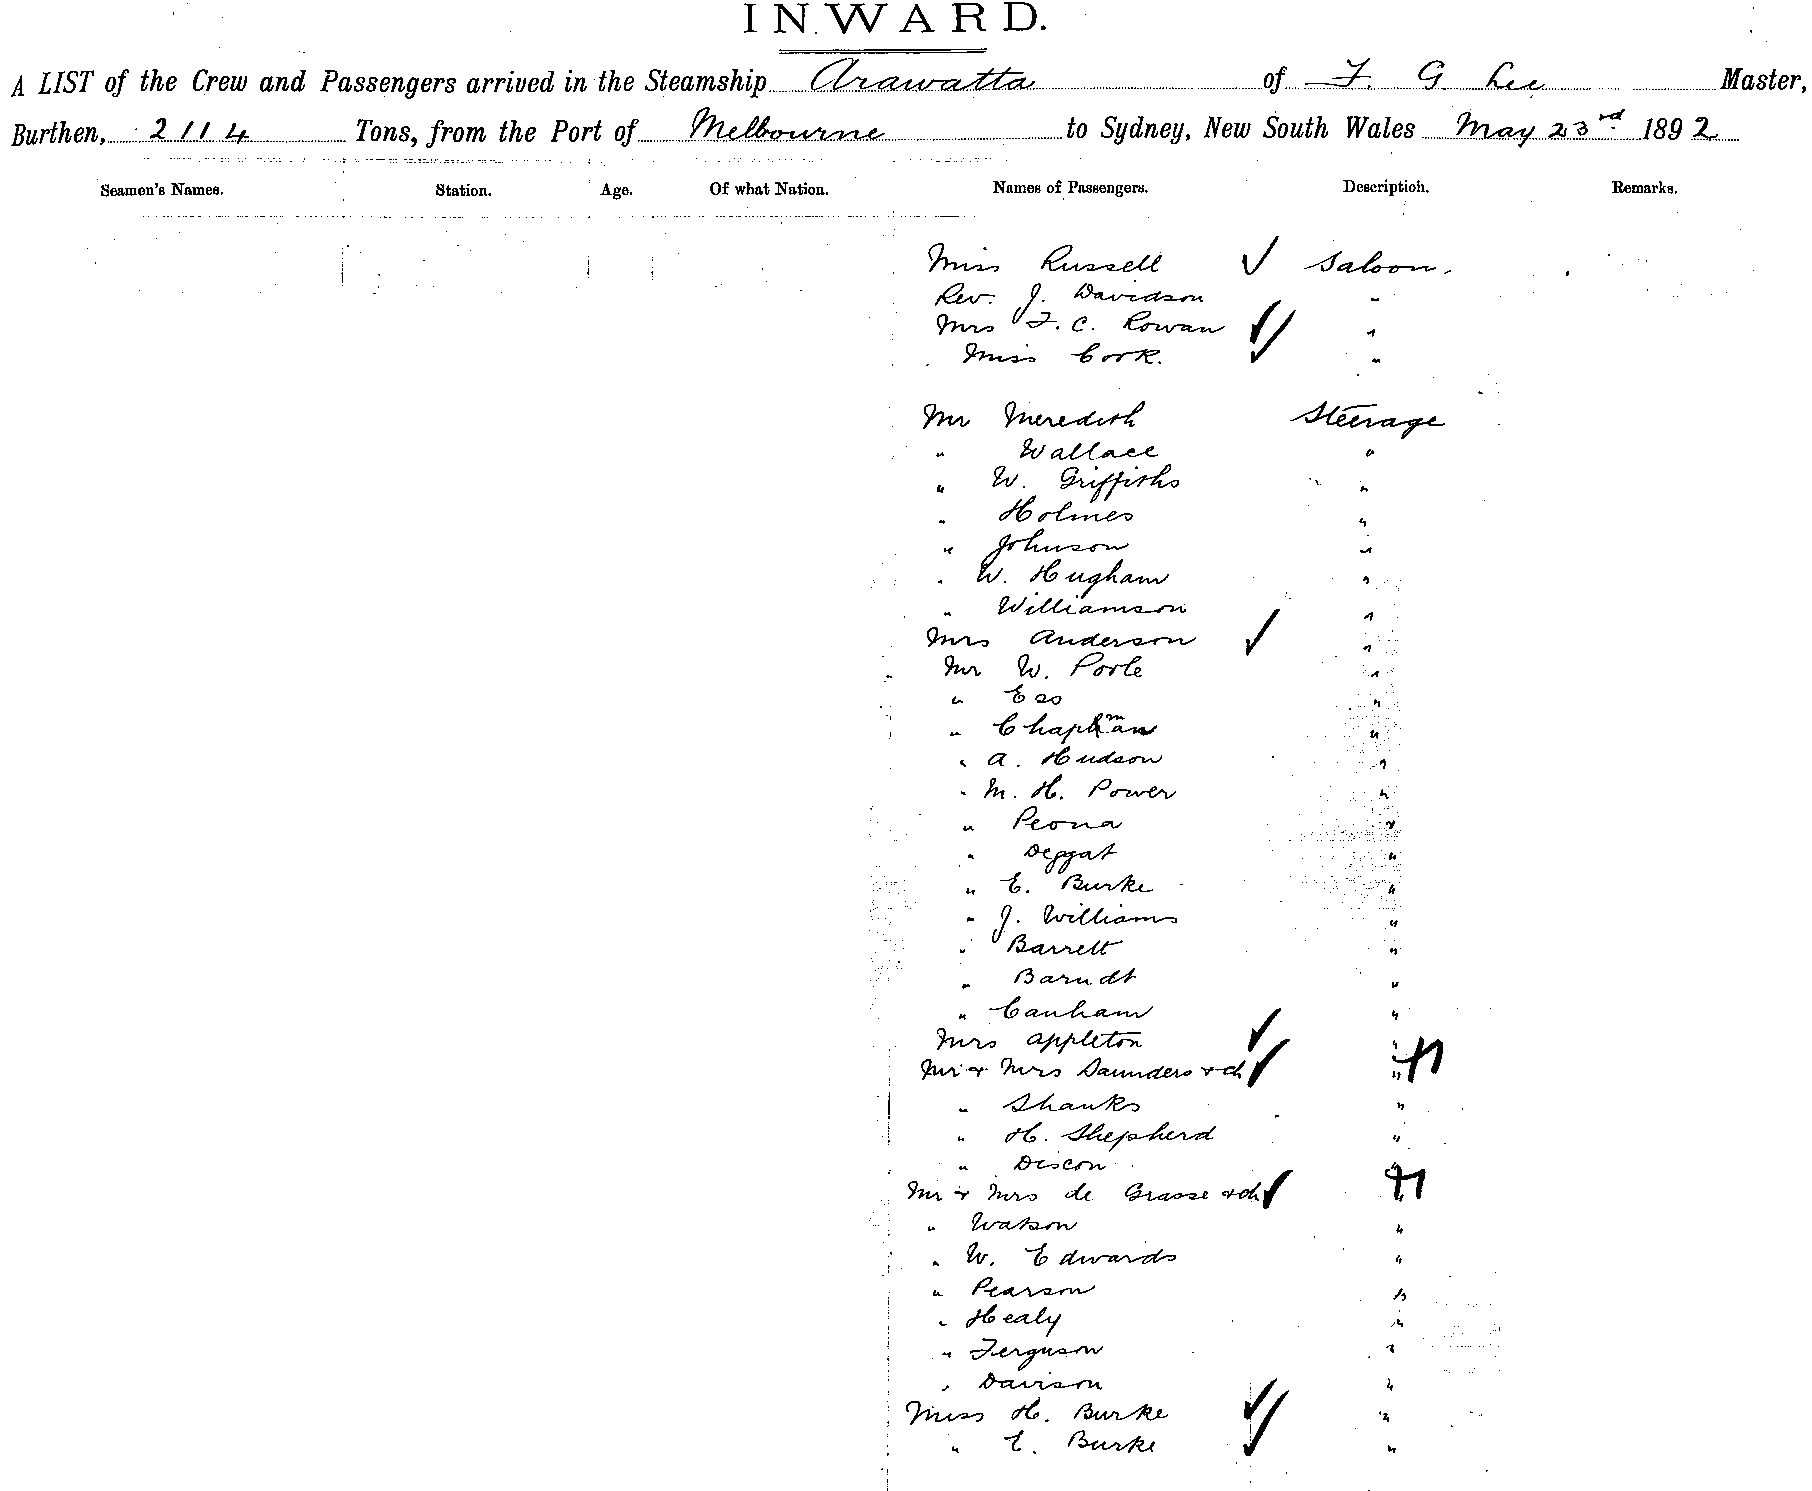 INWARD.
A LIST of the Crew and Passengers arrived in the Steamship Arawatta of F. G. Lee Master,
Burthen, 2114 Tons, from the Port of Melbourne to Sydney, New South Wales May 23rd 1892
Seamen's Names. Station. Age. Of what Nation. Names of Passengers. Description. Remarks.
Miss Russell ✓ Saloon.
Rev. J. Davidson "
Mrs F. C. Rowan ✓ "
Miss Cook. ✓ "
Mr Meredith Steerage
" Wallace "
" W. Griffiths "
" Holmes "
" Johnson "
" W. Hugham "
" Williamson "
Mrs Anderson ✓ "
Mr W. Poole "
" Eso "
" Chapman "
" A. Hudson "
" M. H. Power "
" Peona "
" Deggat "
" E. Burke "
" J. Williams "
" Barrett "
" Barndt "
" Canham "
Mrs Appleton ✓ "
Mr & Mrs Saunders & ch ✓ "
" Shanks "
" H. Shepherd "
" Discon "
Mr & Mrs de Grasse & ch ✓ "
" Watson "
" W. Edwards "
" Pearson "
" Healy "
" Ferguson "
" Davison "
Miss H. Burke ✓ "
" E. Burke ✓ "